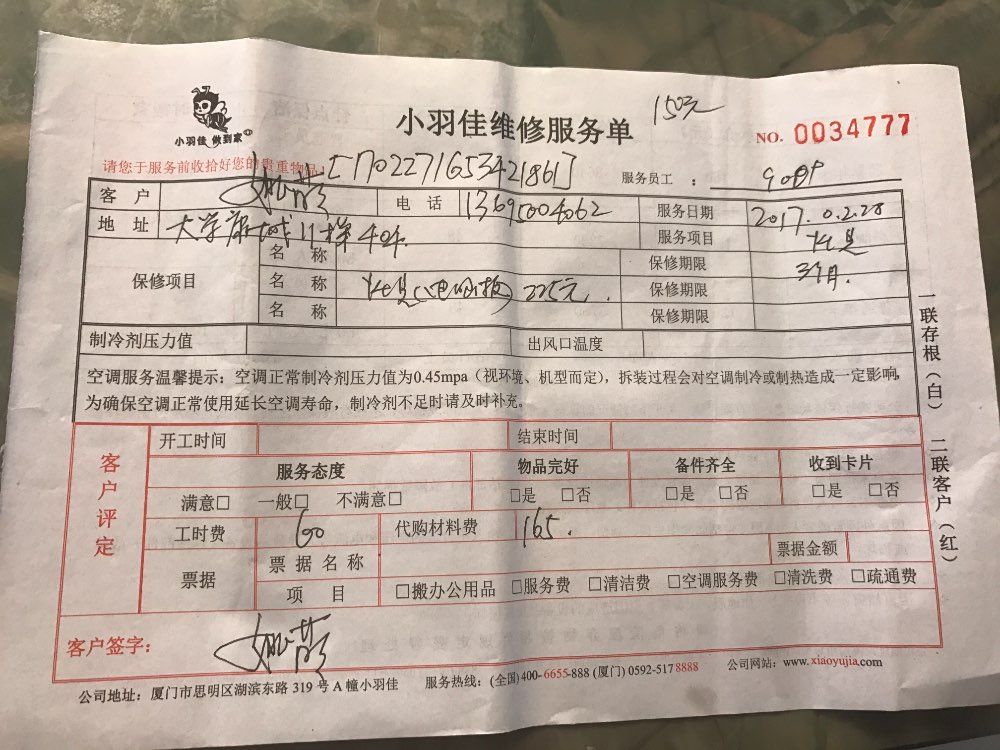 小羽佳 做到家
小羽佳维修服务单
150元
NO. 0034777
请您于服务前收拾好您的贵重物品!
[170227165342186]
服务员工 :
客 户
电 话 13695004062
服务日期 2017.0.2.28
地 址 大学康城11梯404
服务项目
保修项目
名 称
保修期限 3个月.
名 称 225元.
保修期限
名 称
保修期限
制冷剂压力值
出风口温度
空调服务温馨提示:空调正常制冷剂压力值为0.45mpa(视环境、机型而定),拆装过程会对空调制冷或制热造成一定影响,
为确保空调正常使用延长空调寿命,制冷剂不足时请及时补充。
一联存根(白) 二联客户(红)
客户评定
开工时间
结束时间
服务态度
物品完好
备件齐全
收到卡片
满意□ 一般□ 不满意□
□是 □否
□是 □否
□是 □否
工时费 60
代购材料费 165.
票据
票 据 名 称
票据金额
项 目
□搬办公用品 □服务费 □清洁费 □空调服务费 □清洗费 □疏通费
客户签字:
公司地址:厦门市思明区湖滨东路 319 号 A 幢小羽佳
服务热线:(全国)400-6655-888 (厦门) 0592-517 8888
公司网站:www.xiaoyujia.com